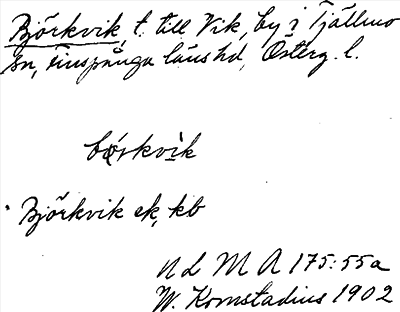 Björkvik, t. till Vik, by i Tjällmo
sn, Finspånga läns hd, Österg. l.
börkvik
Björkvik ek, kb
NLMA 175:55a
W. Kornstadius 1902